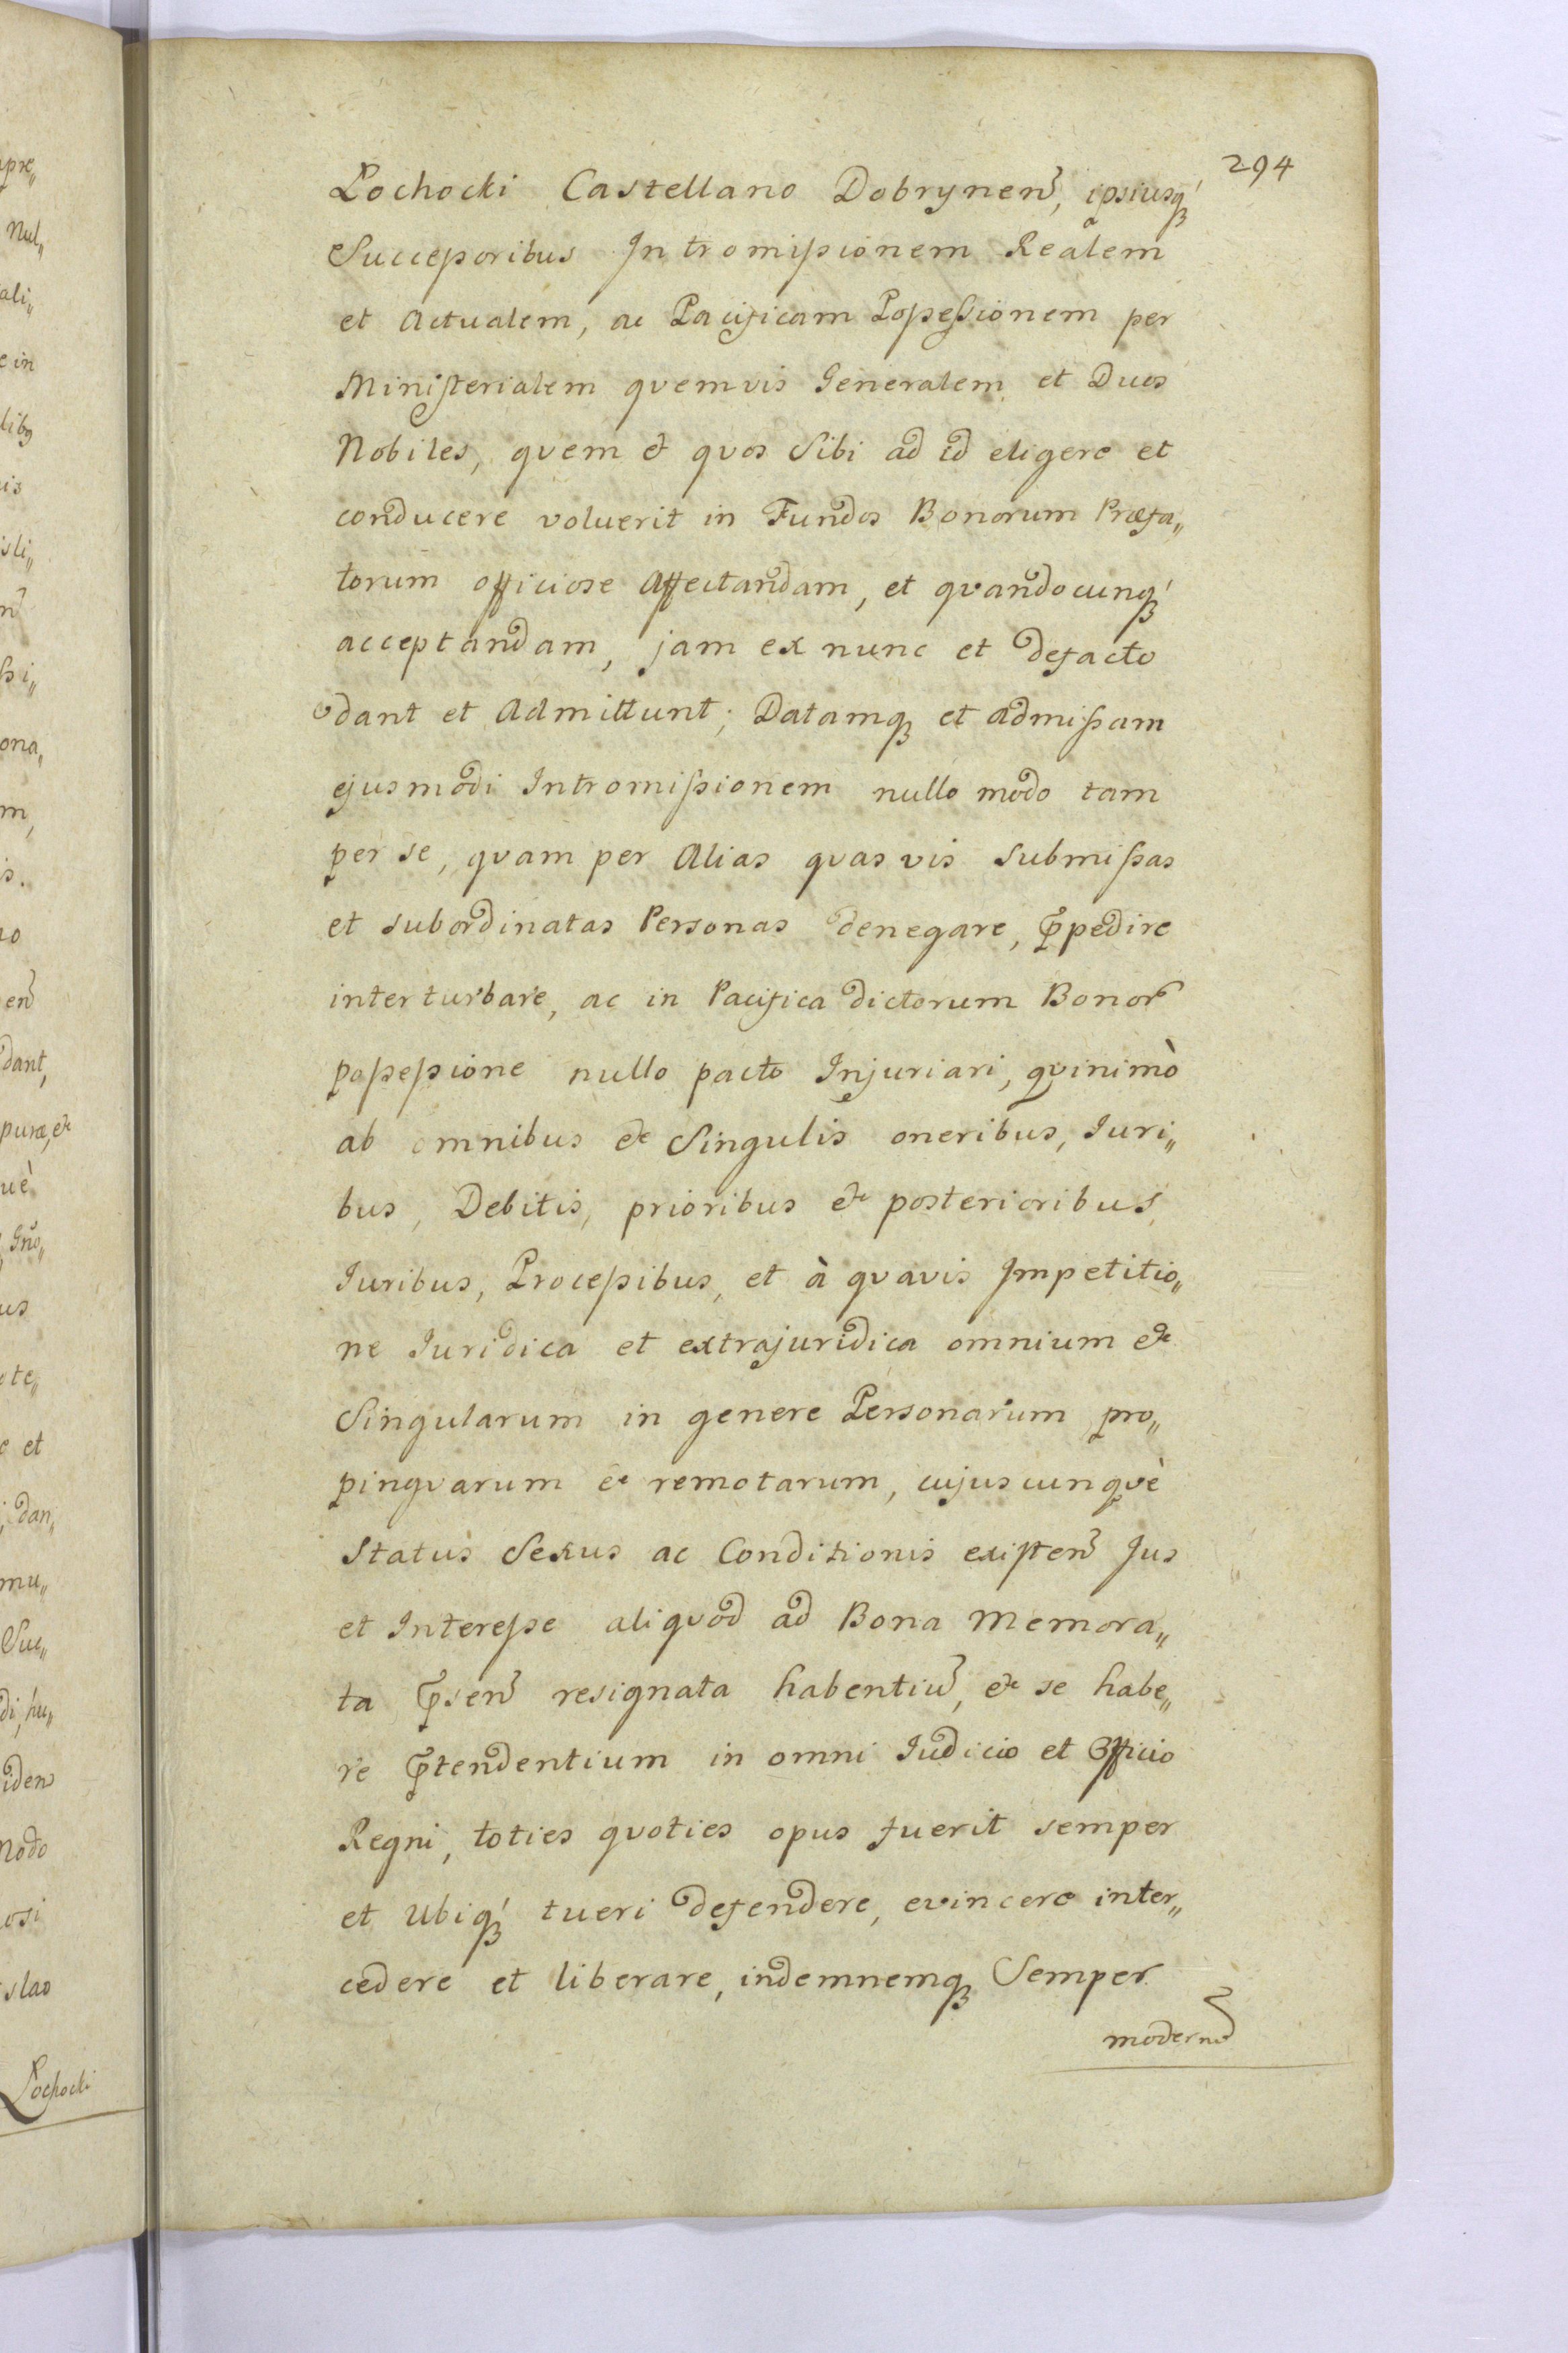 294
Lochocki Castellano Dobrynen, ipsiusq́
Successoribus Intromissionem Realem
et Actualem, ac Pacificam Possessionem per
Ministerialem qvemvis Generalem et Duos
Nobiles, qvem & qvos Sibi ad id eligere et
conducere voluerit in Fundos Bonorum Præfa„
torum officiose affectandam, et qvandocunq́
acceptandam, jam ex nunc et defacto
dant et Admittunt; Datamq et admissam
ejusmodi Intromissionem nullo modo tam
per se, qvam per Alias qvasvis submissas
et subordinatas Personas denegare, p̃pedire
interturbare, ac in Pacifica dictorum Bonor
possessione nullo pacto Injuriari, qvinimò
ab omnibus & Singulis oneribus, Juri„
bus, Debitis, prioribus & posterioribus,
Juribus, Processibus, et à qvavis Impetitio„
ne Juridica et extrajuridica omnium &
Singularum in genere Personarum pro„
pinqvarum & remotarum, cujuscunqvè
Status Sexus ac Conditionis existen Jus
et Interesse aliqvod ad Bona Memora„
ta p̃sen resignata habentiu, & se habe„
re p̃tendentium in omni Judicio et Officio
Regni, toties qvoties opus fuerit semper
et Ubiq́ tueri defendere, evincere inter„
cedere et liberare, indemnemq Semper
moderno
apre„
Nul„
ali„
e in
is
isli„
ssi„
ona„
m,
is.
dant,
puræ, &
uè
Gnõ„
us
te„
e et
dan„
mu„
Suc„
di, hu„
iden
Modo
osi
slao
Lochocki